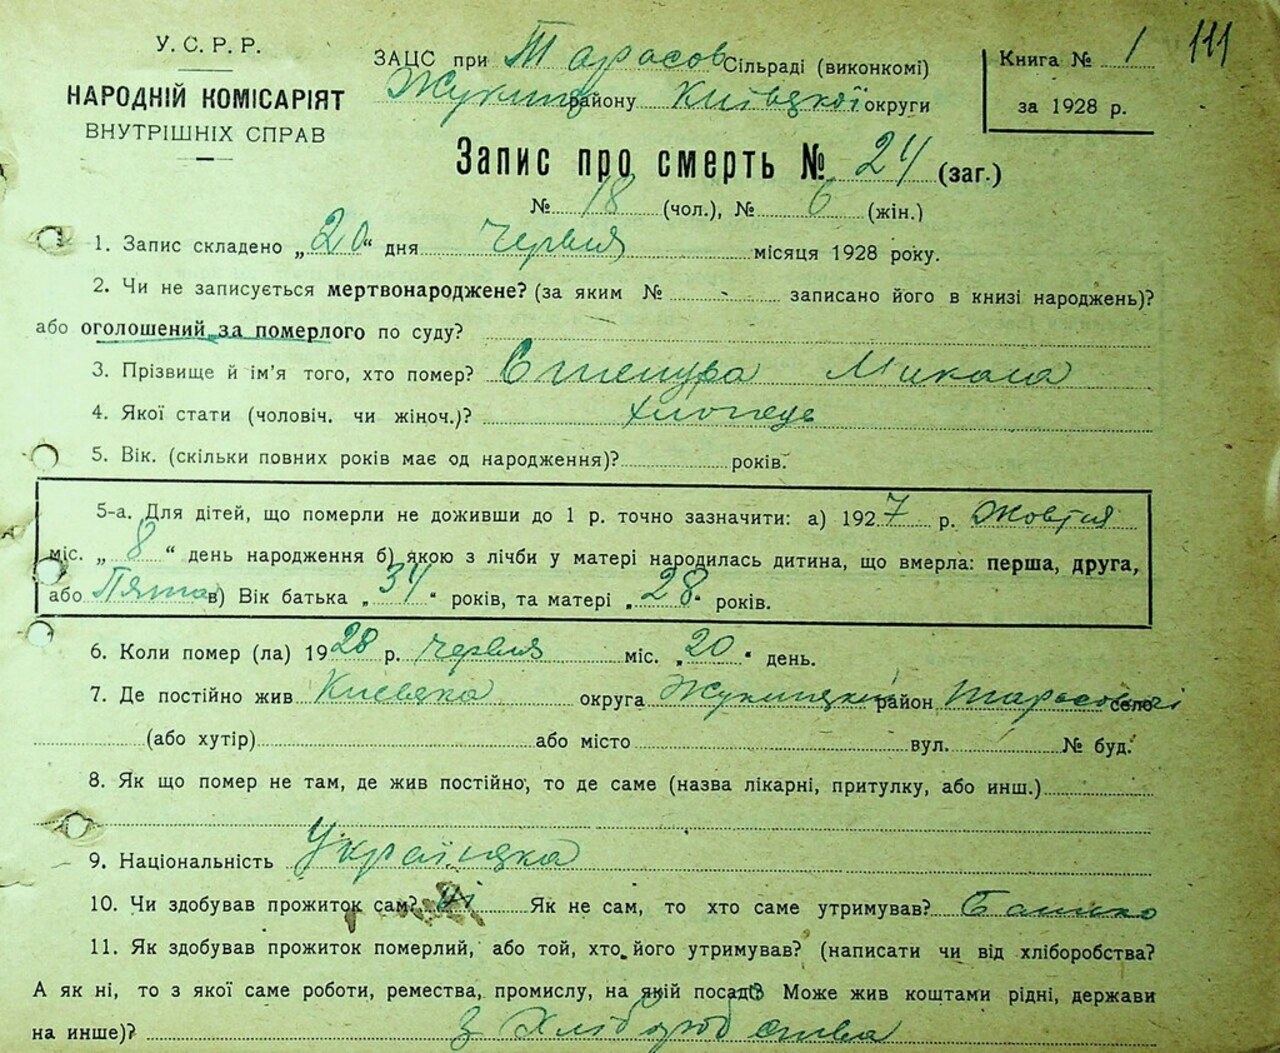 У. С. Р. Р.
НАРОДНІЙ КОМІСАРІЯТ
ВНУТРІШНІХ СПРАВ
ЗАЦС при Тарасов Сільраді (виконкомі)
Жукин району Київської округи
Книга № 1 111
за 1928 р.
Запис про смерть № 24 (заг.)
№ 18 (чол.), № 6 (жін.)
1. Запис складено „20“ дня Червня місяця 1928 року.
2. Чи не записується мертвонароджене? (за яким № - записано його в книзі народжень)?
або оголошений за померлого по суду?
3. Прізвище й ім'я того, хто помер? Стецура Микола
4. Якої стати (чоловіч. чи жіноч.)? хлопець
5. Вік. (скільки повних років має од народження)? років.
5-а. Для дітей, що померли не доживши до 1 р. точно зазначити: а) 1927 р. Жовтня
міс. „8“ день народження б) якою з лічби у матері народилась дитина, що вмерла: перша, друга,
або Пята в) Вік батька „34“ років, та матері „28“ років.
6. Коли помер (ла) 1928 р. червня міс. „20“ день.
7. Де постійно жив Киевска округа Жукинский район Тарасовичі село
(або хутір) або місто вул. № буд.
8. Як що помер не там, де жив постійно, то де саме (назва лікарні, притулку, або инш.)
9. Національність Українска
10. Чи здобував прожиток сам? Ні Як не сам, то хто саме утримував? Батько
11. Як здобував прожиток померлий, або той, хто його утримував? (написати чи від хліборобства?
А як ні, то з якої саме роботи, ремества, промислу, на якій посаді? Може жив коштами рідні, держави
на инше)? З Хліборобства